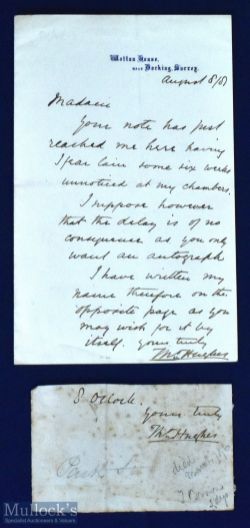 Wotton House,
near Dorking, Surrey.
August 8/81
Madam
Your note has just
reached me here having
I fear lain some six weeks
unnoticed at my chambers.
I suppose however
that the delay is of no
consequence as you only
want an autograph
I have written my
name therefore on the
opposite page as you
may wish for it by
itself. Yours truly
Thos Hughes
8 O'clock.
Yours truly
Thos Hughes
died
Mullock's
Specialist Auctioneers & Valuers